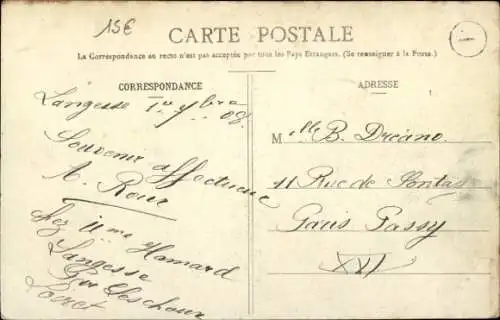 15€
CARTE POSTALE
La Correspondance au recto n'est pas acceptée par tous les Pays Etrangers. (Se renseigner à la Poste.)
CORRESPONDANCE
Langesse 1er 9bre
08.
Souvenir affectueux
A. Roux
chez Mme Hamard
Langesse
par
Loiret
ADRESSE
Melle B. Dréano.
11 Rue de
Paris Passy
XVI